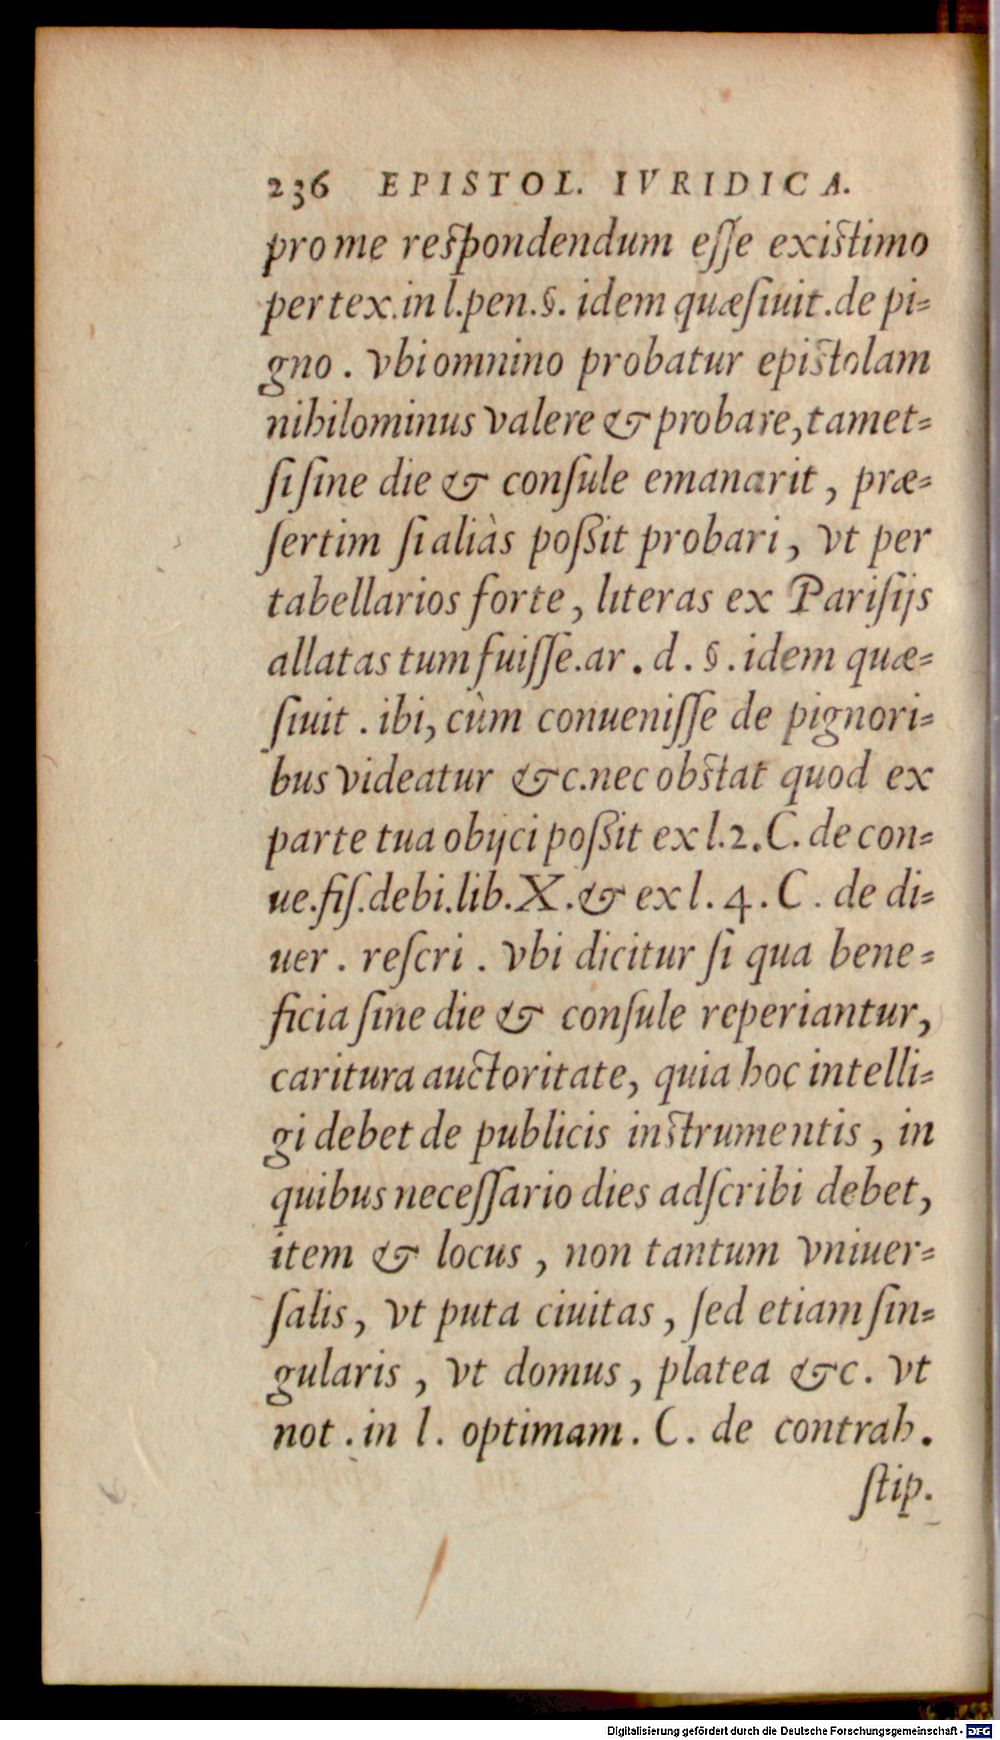 236 EPISTOL. IVRIDICA.
pro me respondendum eſſe existimo
per tex. in l. pen. §. idem quæſiuit. de pi-
gno. vbi omnino probatur epistolam
nihilominus valere & probare, tamet-
ſi ſine die & conſule emanarit, præ-
ſertim ſi aliàs poßit probari, vt per
tabellarios forte, literas ex Pariſijs
allatas tum fuiſſe. ar. d. §. idem quæ-
ſiuit. ibi, cùm conueniſſe de pignori-
bus videatur &c. nec obstat quod ex
parte tua obijci poßit ex l. 2. C. de con-
ue. fiſ. debi. lib. X. & ex l. 4. C. de di-
uer. reſcri. vbi dicitur ſi qua bene-
ficia ſine die & conſule reperiantur,
caritura auctoritate, quia hoc intelli-
gi debet de publicis instrumentis, in
quibus neceſſario dies adſcribi debet,
item & locus, non tantum vniuer-
ſalis, vt puta ciuitas, ſed etiam ſin-
gularis, vt domus, platea &c. vt
not. in l. optimam. C. de contrah.
ſtip.
Digitalisierung gefördert durch die Deutsche Forschungsgemeinschaft - DFG